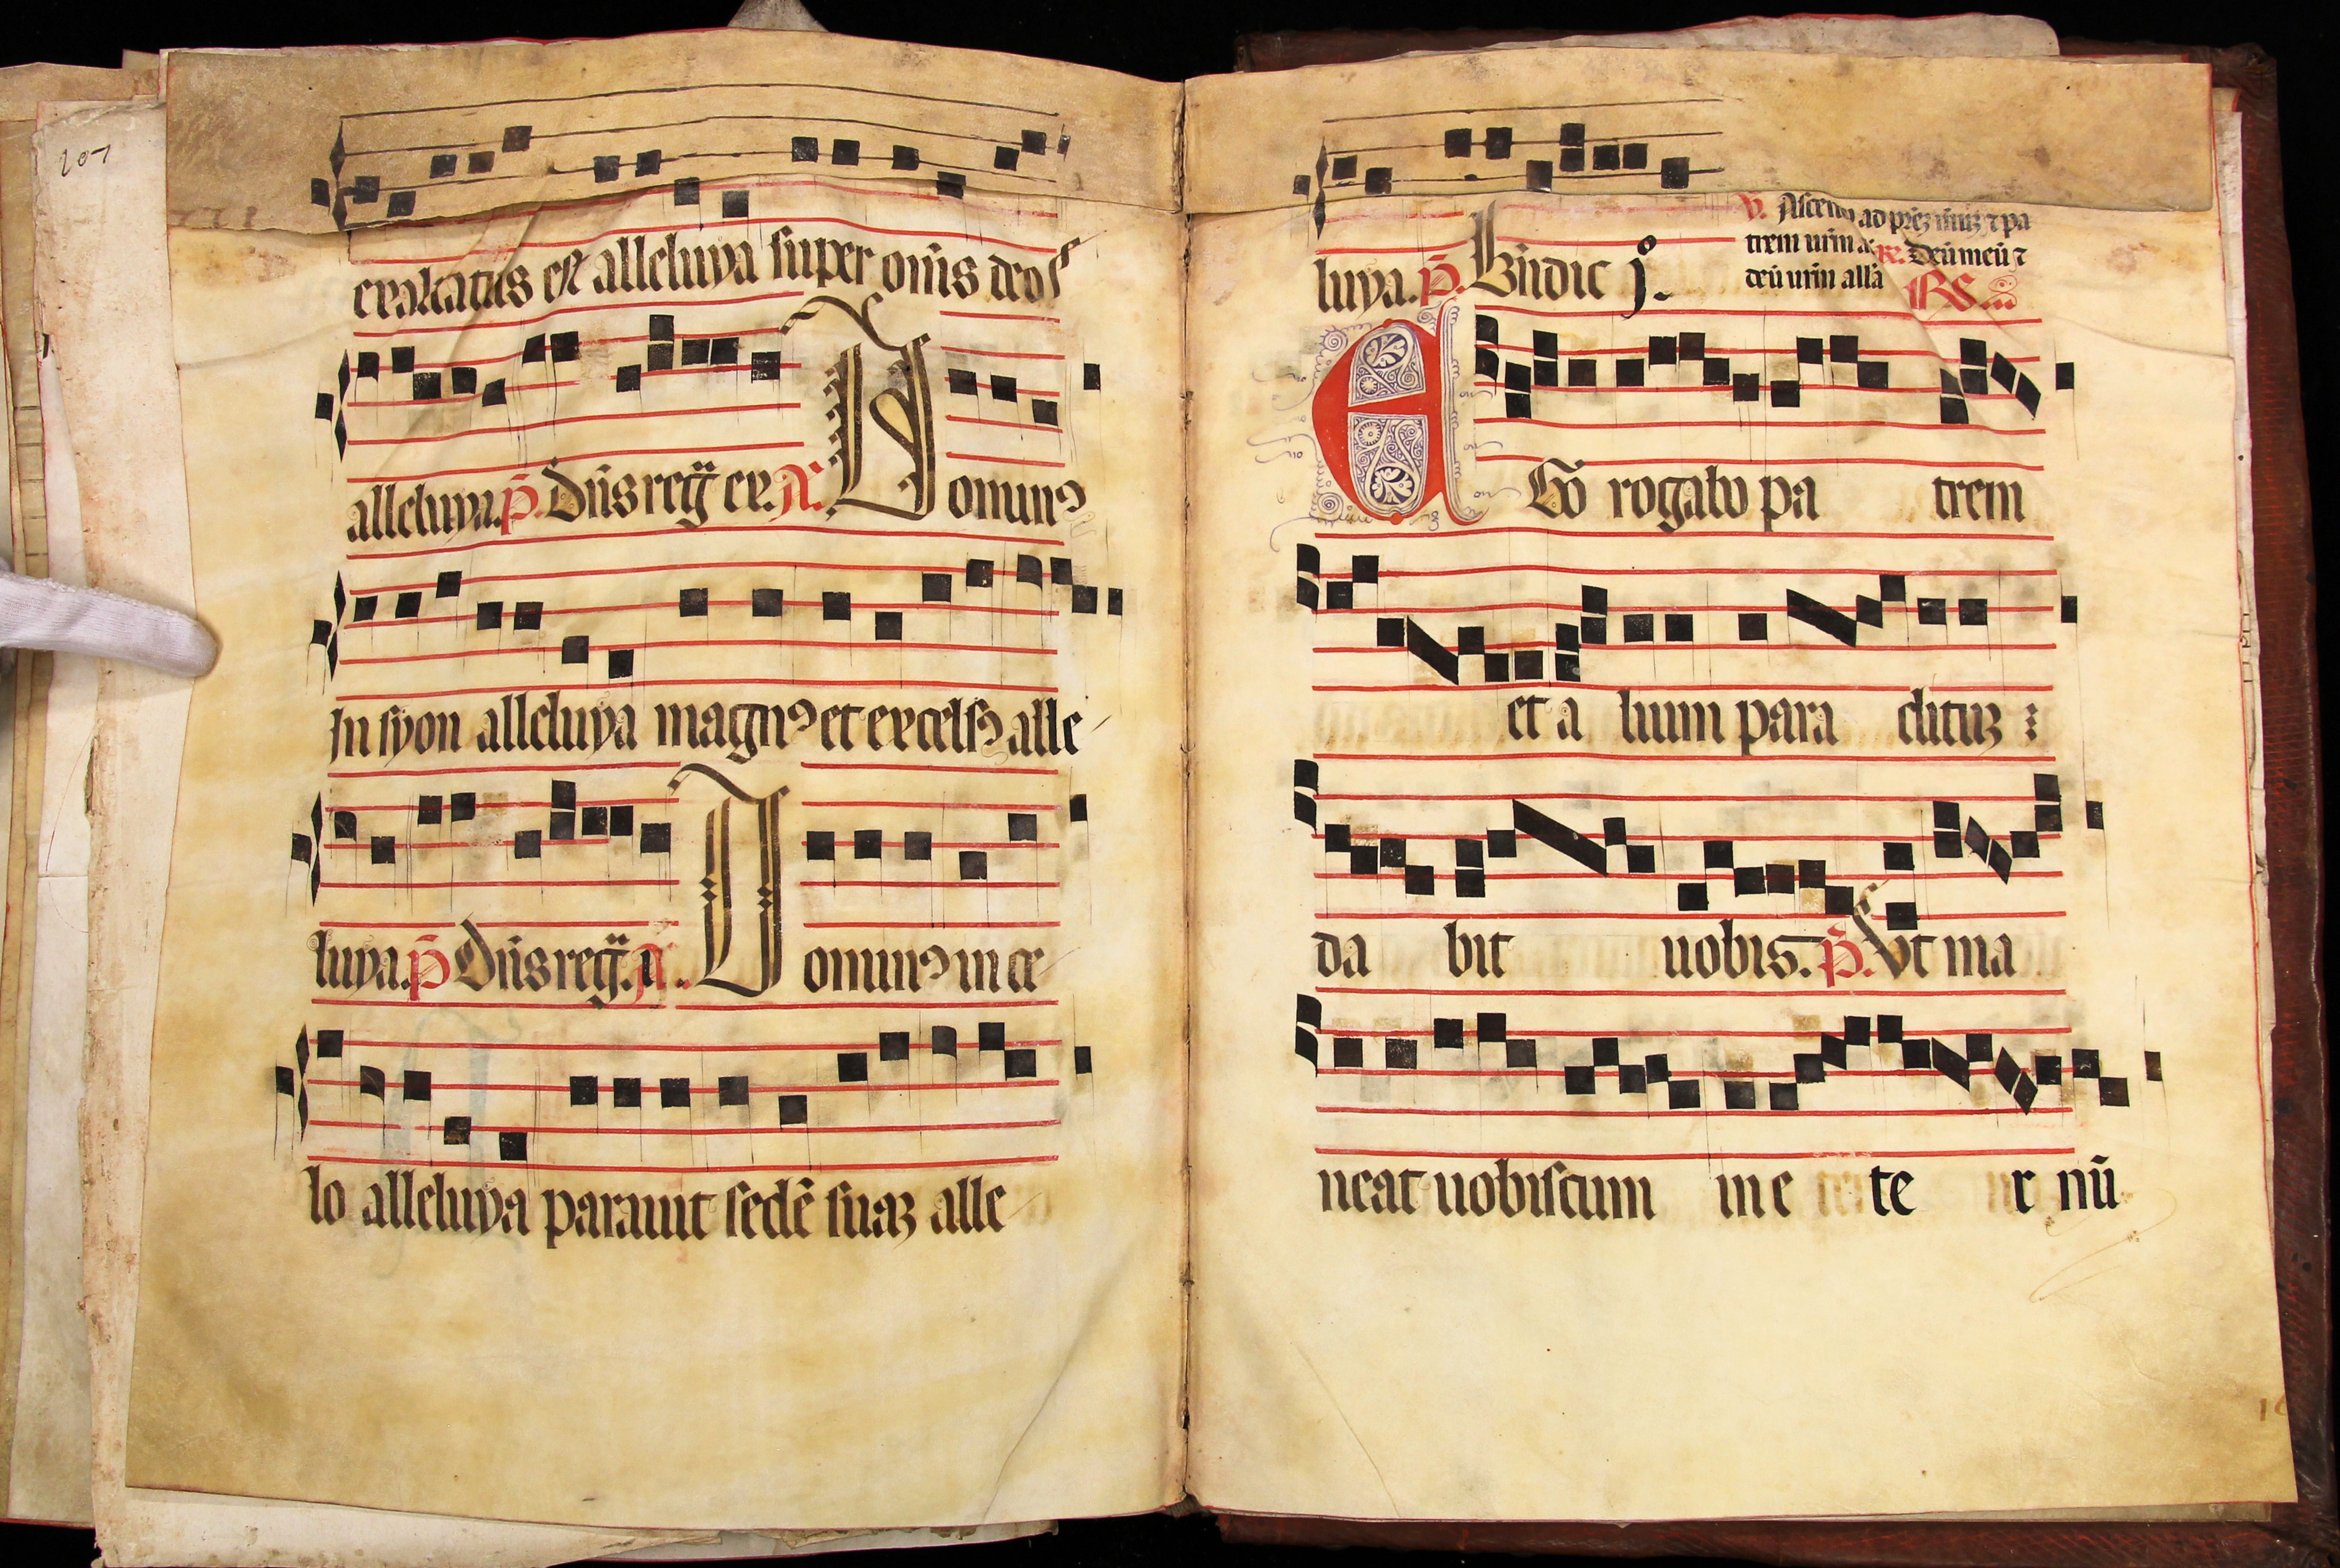 207
exaltatus est alleluya super oīns deos
alleluya. p̄. Dn̄s reg̈ ex. A. Dominꝯ
in syon alleluya magnꝯ et excelsꝯ alle
luya. p̄ Dn̄s reg̈. A. Dominꝯ in ce
lo alleluya parauit sedē suaꝫ alle
luya. p̄. Bn̄dic j.
V. Ascendo ad pr̄eꝫ m̄uꝫ ⁊ pa
trem ur̄m a R. Deū meū ⁊
deū ur̄m all̄a
Ego rogabo pa trem
et a lium para clituꝫ :
da bit uobis. p̄. Ut ma
neat uobiscum in e te r nū